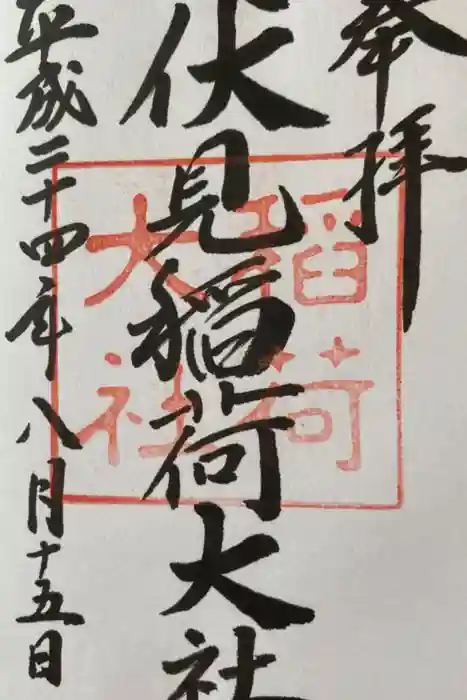 奉拝
伏見稲荷大社
平成二十四年八月十五日
稲荷
大社